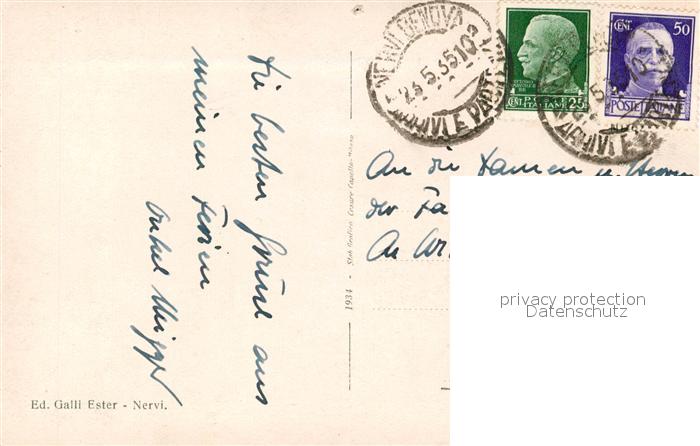 Die besten Grüße aus
meinen Ferien
Onkel
Ed. Galli Ester - Nervi.
1934 - Stab. Grafico Cesare Capello - Milano
NERVI (GENOVA)
23.5.35.10
ARRIVI E PARTENZE
CENT. 25
POSTE ITALIANE
CENT. 50
POSTE ITALIANE
An die Damen u. Herren
der Fa
An
privacy protection
Datenschutz